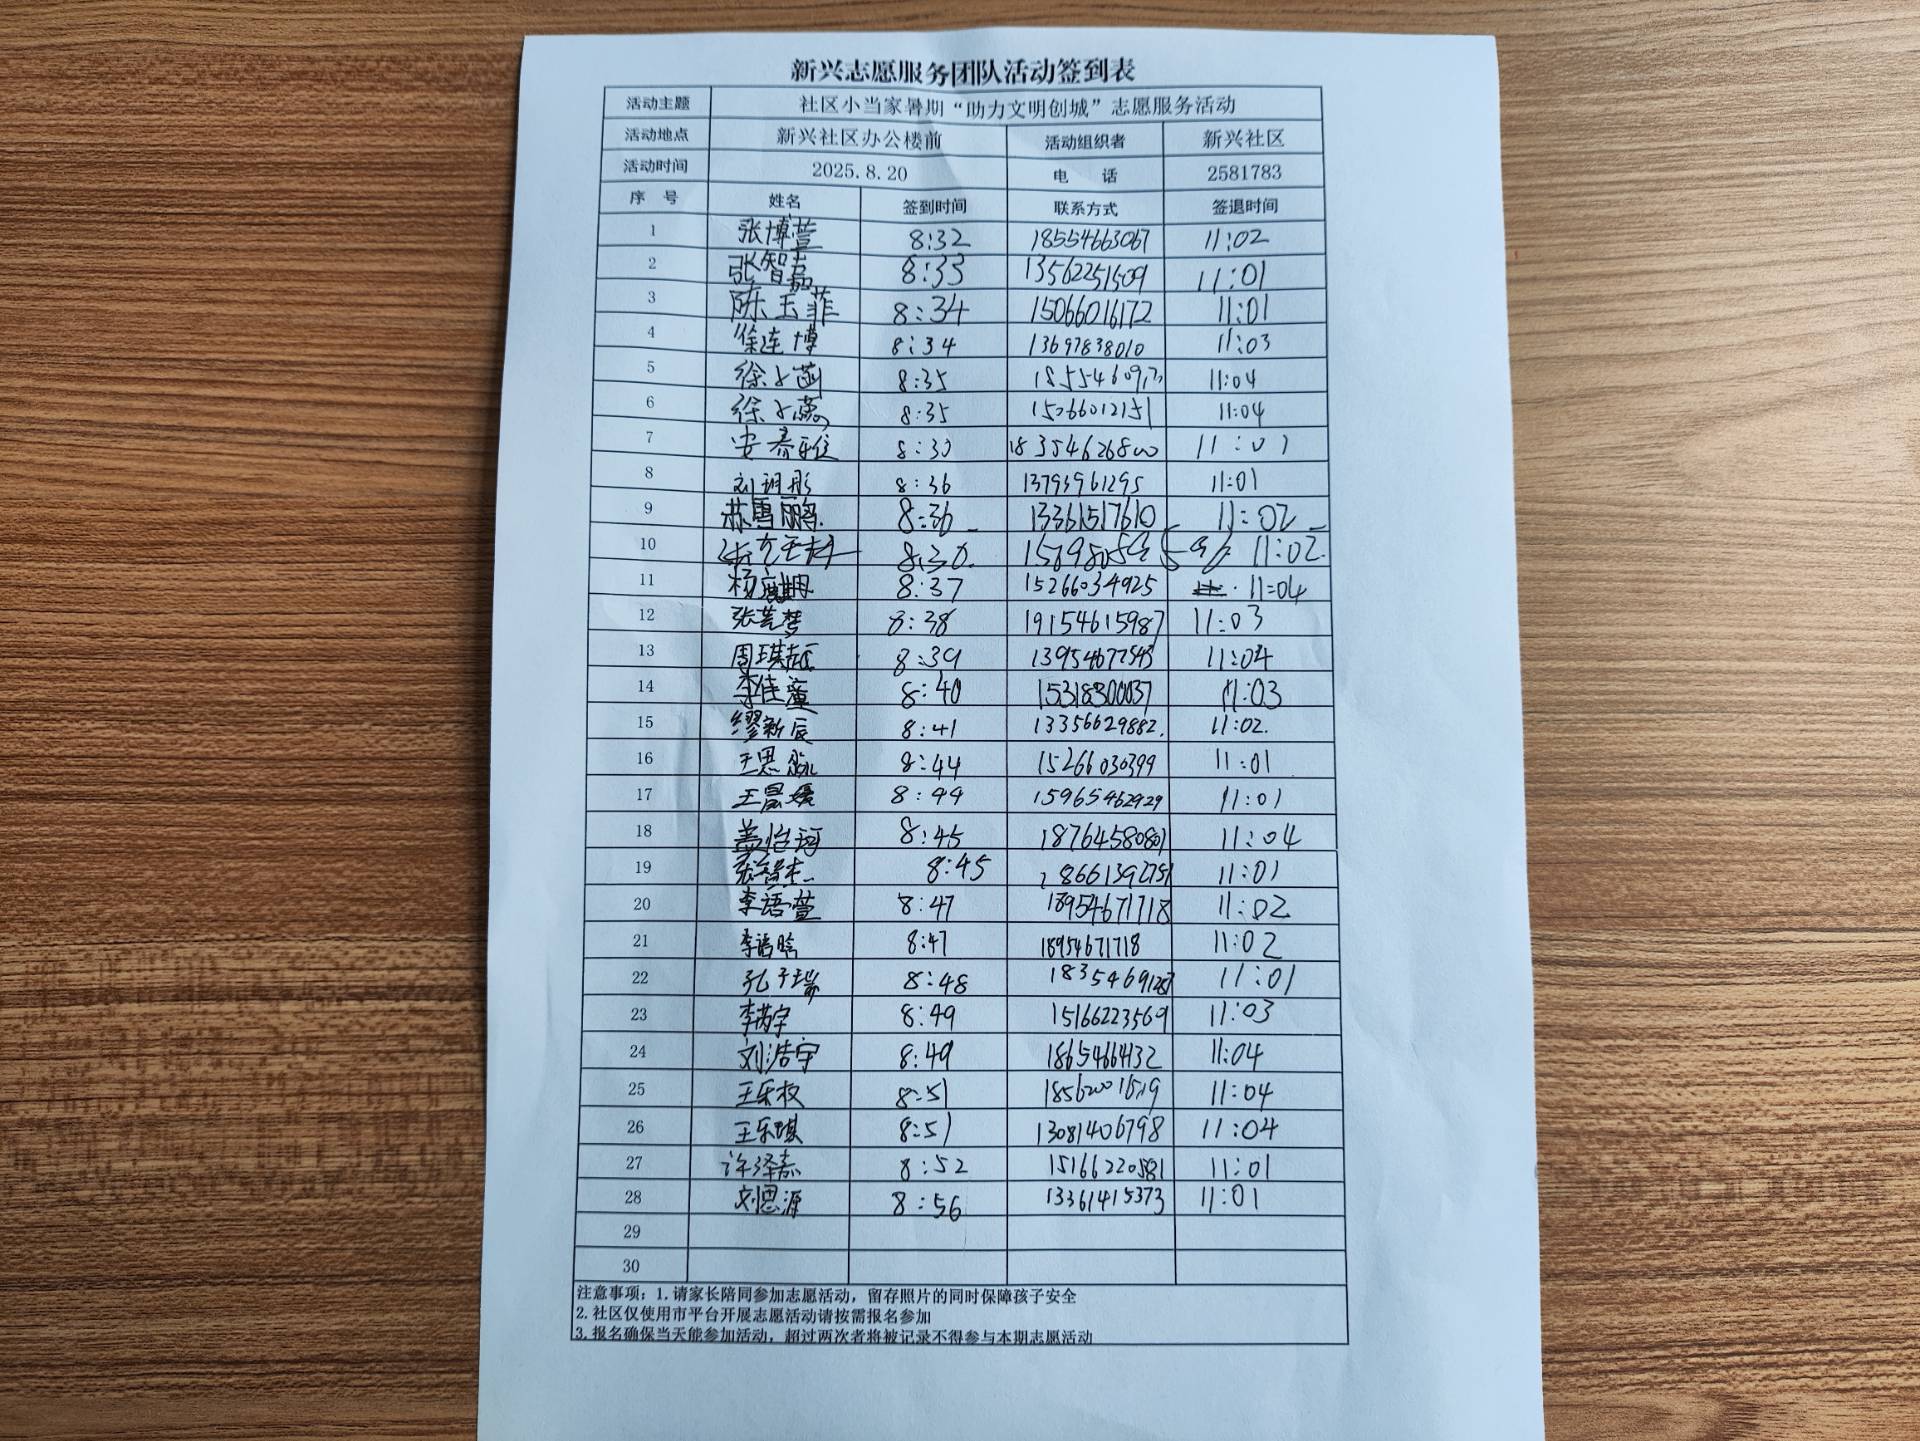 新兴志愿服务团队活动签到表
活动主题 社区小当家暑期“助力文明创城”志愿服务活动
活动地点 新兴社区办公楼前 活动组织者 新兴社区
活动时间 2025.8.20 电 话 2581783
序 号 姓名 签到时间 联系方式 签退时间
1 张博萱 8:32 18554663067 11:02
2 张智嘉 8:33 13562251509 11:01
3 陈玉菲 8:34 15066016172 11:01
4 徐连博 8:34 13697838010 11:03
5 徐 8:35 11:04
6 徐 8:35 15266012151 11:04
7 安 雅 18354626800
8 刘玥彤 8:36 13793961295 11:01
9 苏雪鹏 8:36 13361517610 11:02
10 11:02
11 杨 8:37 15266034925 11:04
12 张芸梦 8:38 19154615987 11:03
13 周琪 8:39 13954677543 11:04
14 李佳童 8:40 15318300037 11:03
15 缪新辰 8:41 13356629882. 11:02.
16 王思 8:44 15266030399 11:01
17 王 8:44 15965462929 11:01
18 盖怡珂 8:45 18764580801 11:04
19 张智杰 8:45 18661392751 11:01
20 李语萱 8:47 18954671718 11:02
21 李语晗 8:47 18954671718 11:02
22 孔子瑞 8:48 11:01
23 李芮宇 8:49 15166223569 11:03
24 刘浩宇 8:49 18654664132 11:04
25 王乐权 8:51 11:04
26 王乐琪 8:51 13081406798 11:04
27 许泽嘉 8:52 15166220581 11:01
28 刘思源 8:56 13361415373 11:01
29
30
注意事项：1.请家长陪同参加志愿活动，留存照片的同时保障孩子安全
2.社区仅使用市平台开展志愿活动请按需报名参加
3.报名确保当天能参加活动，超过两次者将被记录不得参与本期志愿活动